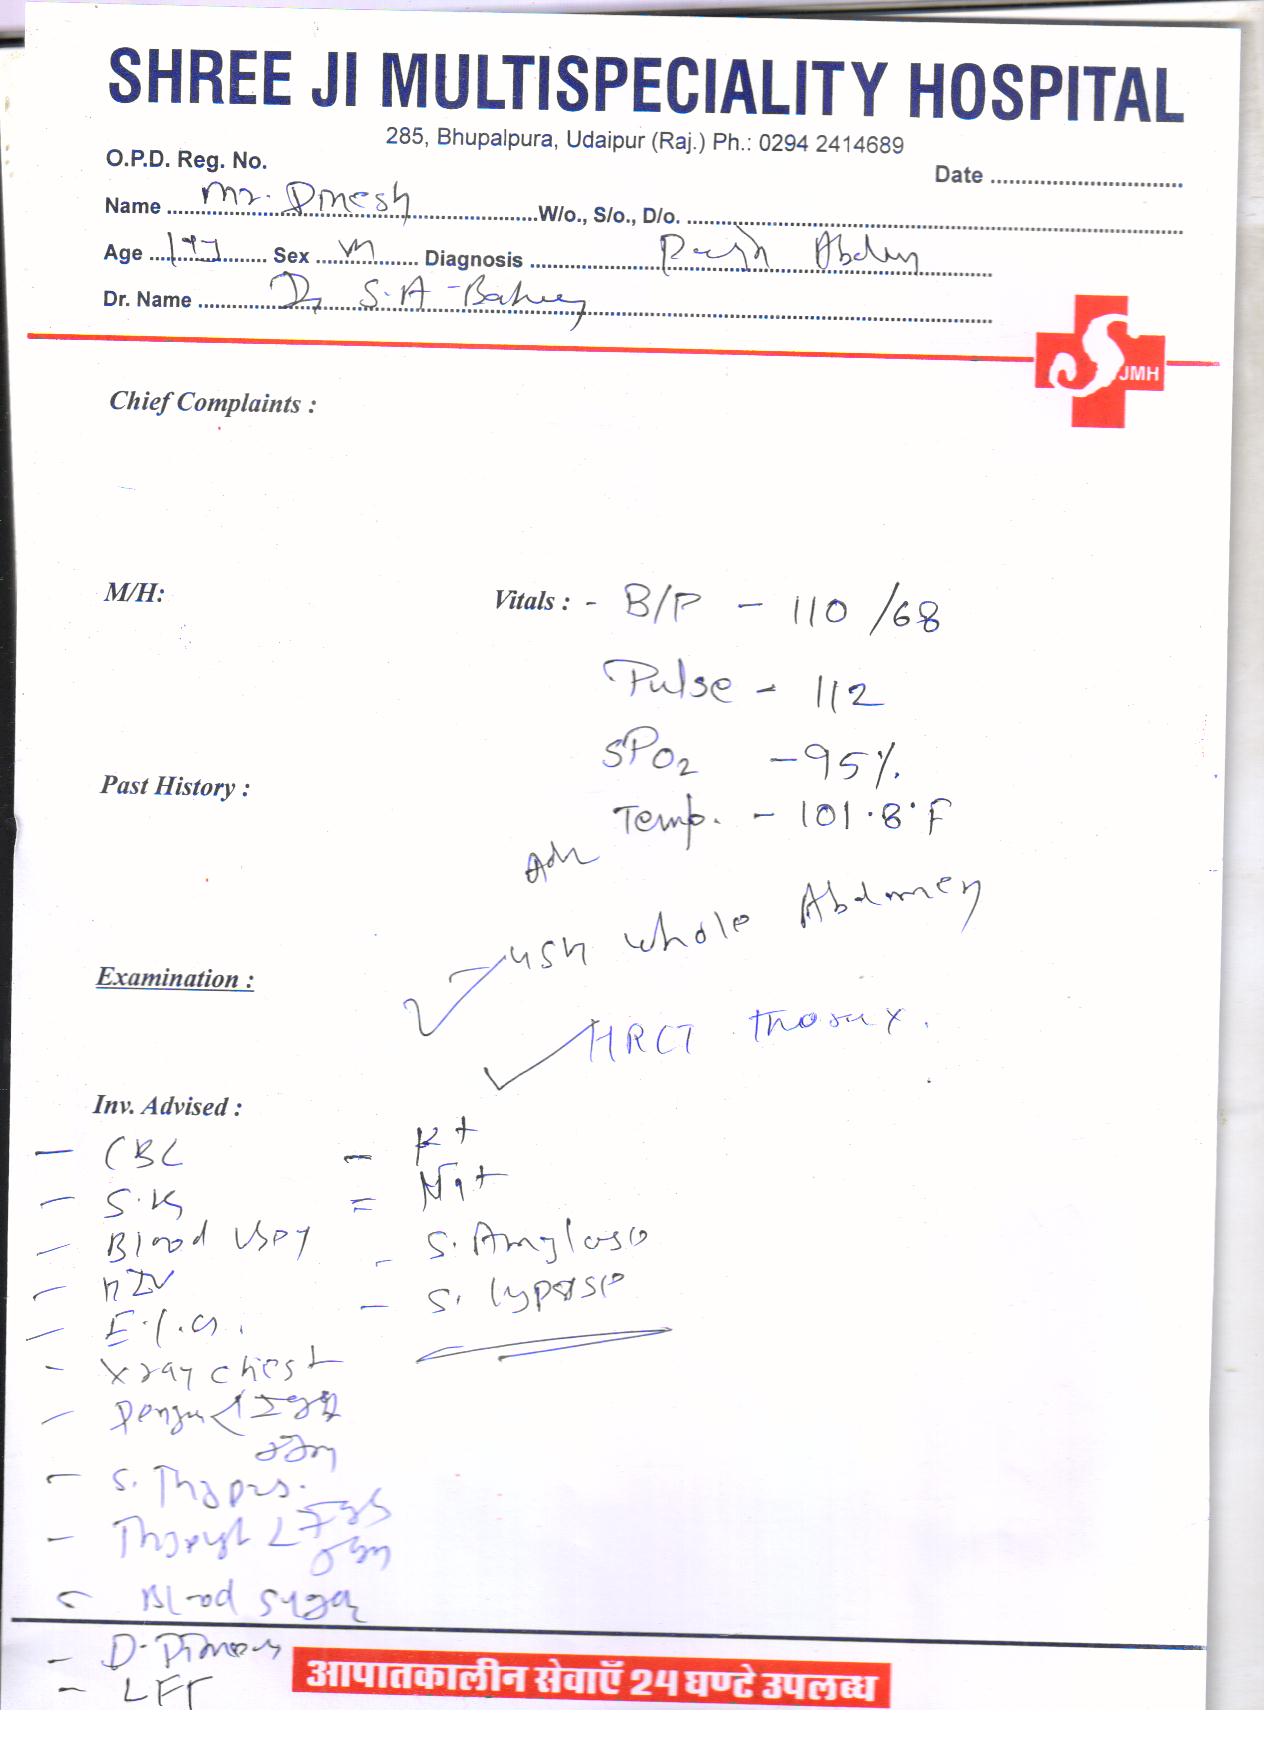 SHREE JI MULTISPECIALITY HOSPITAL
285, Bhupalpura, Udaipur (Raj.) Ph.: 0294 2414689
O.P.D. Reg. No.
Date
Name Mr. Dinesh W/o., S/o., D/o.
Age Sex M Diagnosis
Dr. Name Dr S.A
JMH
Chief Complaints :
M/H:
Vitals : - B/P - 110/68
Pulse - 112
SPO2 - 95%
Past History :
Temp. - 101.8°F
Adv
USG whole Abdomen
Examination :
HRCT thorax.
Inv. Advised :
- CBC
- K+
- S.
= Na+
- Blood Urea
- S. Amylase
- S. lypase
- X ray chest
- Dengue < IgG
IgM
- S.
IgG
IgM
- Blood Sugar
- D-Dimer
- LFT
आपातकालीन सेवाएँ 24 घण्टे उपलब्ध